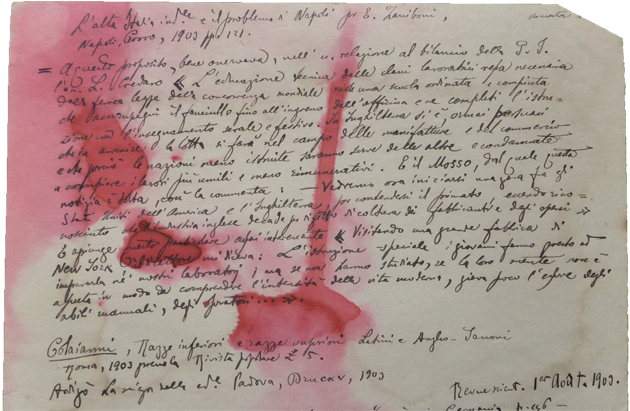 L'alta Italia ind.le e il problema di Napoli pr E. Zaniboni,
Napoli, Pierro, 1903 pp. 121.
= A questo proposito, bene osservava, nell' u. relazione al bilancio della P. I.
l'on. L. Credaro « L'educazione tecnica delle classi lavoratrici resa necessaria
dalla ferrea legge della concorrenza mondiale vuole una scuola ordinata, compiuta,
che accompagni il fanciullo fino all'ingresso dell'officina e ne completi l'istru=
zione con l'insegnamento serale e festivo. In Inghilterra si è ormai persuasi
che in avvenire la lotta si farà nel campo delle manifatture e del commercio
e che perciò le nazioni meno istruite saranno serve delle altre e condannate
a compiere i lavori più umili e meno rimunerativi. E il Mosso, dal quale questa
notizia è tolta, così la commenta: — Vedremo ora iniziarsi una gara fra gli
Stati Uniti dell'America e l'Inghilterra per contendersi il primato
inglese di coltura dei fabbricanti e degli operai »
E aggiunge questo particolare assai interessante « Visitando una grande fabbrica di
New York il direttore mi diceva: L'istruzione speciale i giovani fanno presto ad
impararla ne' nostri laboratori; ma se non hanno studiato, se la loro mente non è
aperta in modo da comprendere l'intensità della vita moderna, giova poco l'essere degli
abili manuali, degli operatori ... ».
Colaianni, Razze inferiori e razze superiori Latini e Anglo-Sassoni
Roma, 1903 presso la Rivista popolare L. 5.
Ardigò La scienza della ed.e Padova, Drucker, 1903
Revue scient. 1er Août. 1903.